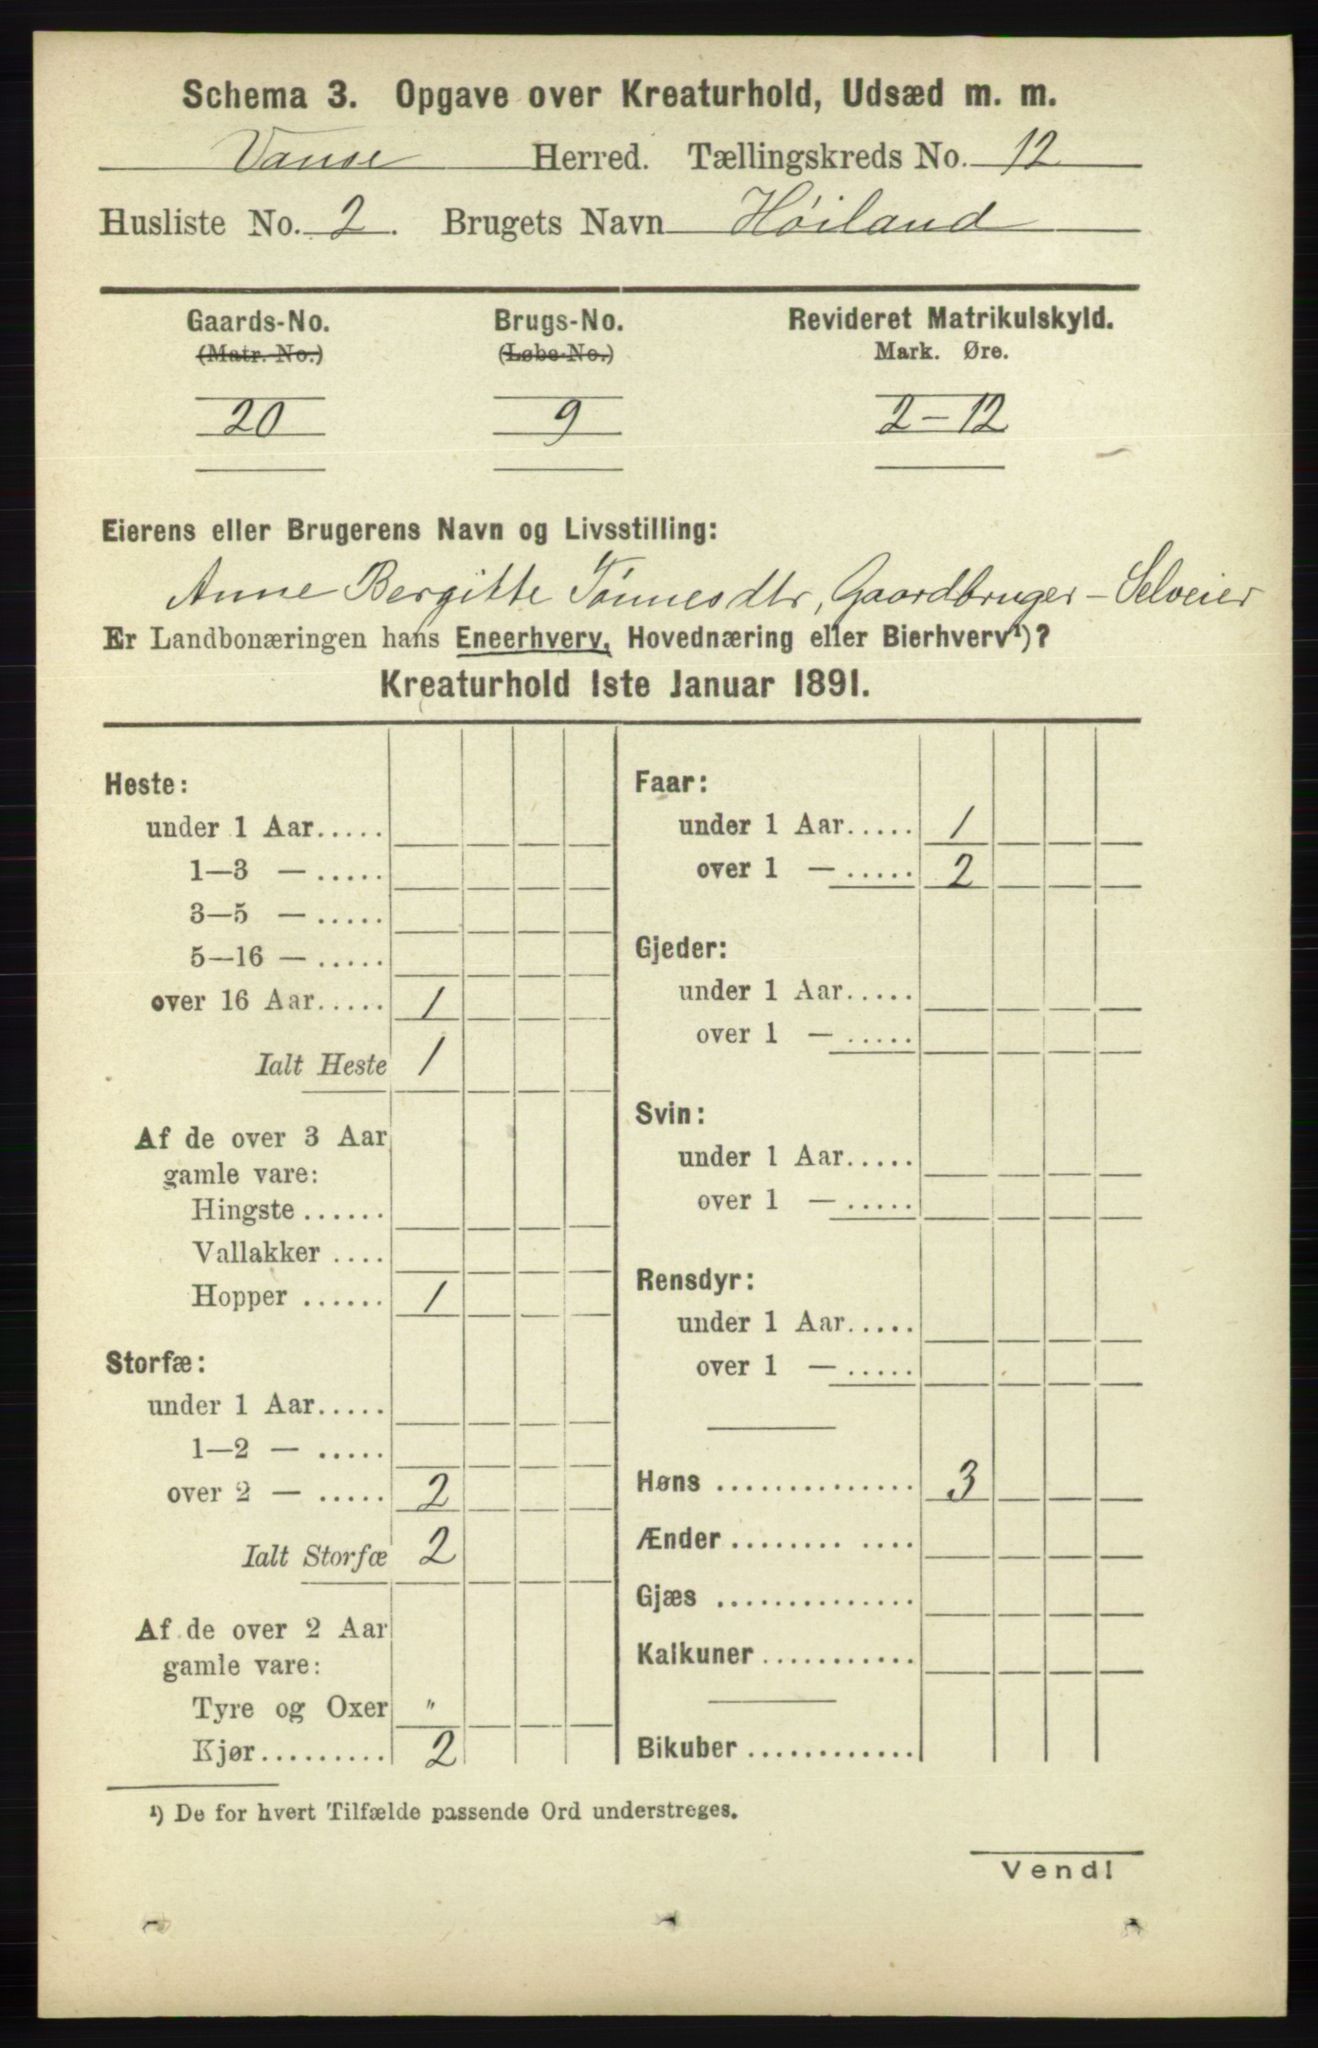 Schema 3. Opgave over Kreaturhold, Udsæd m. m.
Vanse Herred. Tællingskreds No. 12
Husliste No. 2. Brugets Navn Høiland
Gaards-No. Brugs-No. Revideret Matrikulskyld.
(Matr. No.) (Løbe-No.) Mark. Øre.
20 9 2-12
Eierens eller Brugerens Navn og Livsstilling:
Anne Bergitte Tønnesdtr, Gaardbruger - Selveier
Er Landbonæringen hans Eneerhverv, Hovednæring eller Bierhverv¹)?
Kreaturhold 1ste Januar 1891.
Heste:
under 1 Aar.....
1—3 — .....
3—5 — .....
5—16 — .....
over 16 Aar..... 1
Ialt Heste 1
Af de over 3 Aar
gamle vare:
Hingste ......
Vallakker ....
Hopper ...... 1
Storfæ:
under 1 Aar.....
1—2 — .....
over 2 — ..... 2
Ialt Storfæ 2
Af de over 2 Aar
gamle vare:
Tyre og Oxer "
Kjør......... 2
Faar:
under 1 Aar..... 1
over 1 — ..... 2
Gjeder:
under 1 Aar.....
over 1 — .....
Svin:
under 1 Aar.....
over 1 — .....
Rensdyr:
under 1 Aar.....
over 1 — .....
Høns .............. 3
Ænder ........ ....
Gjæs ..............
Kalkuner ...........
Bikuber .............
¹) De for hvert Tilfælde passende Ord understreges.
Vend!